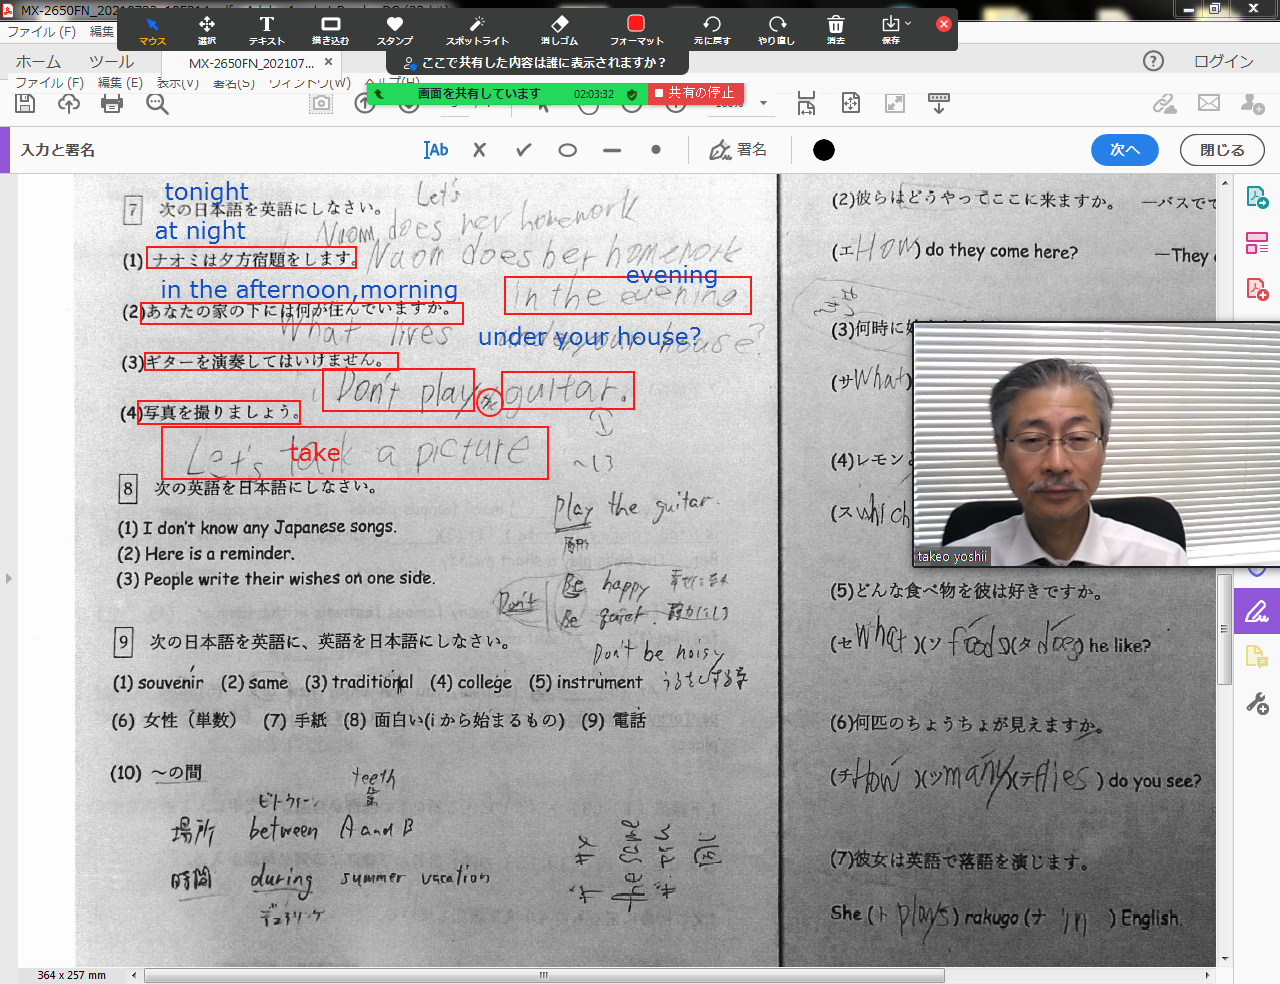 マウス 選択 テキスト 描き込む スタンプ スポットライト 消しゴム フォーマット 元に戻す やり直し 消去 保存
ファイル (F) 編集
ここで共有した内容は誰に表示されますか？
ホーム ツール MX-2650FN_202107... × ログイン
ファイル (F) 編集 (E) 表示(V) 署名(S) ウィンドウ(W) ヘルプ(H)
画面を共有しています 02:03:32 共有の停止
入力と署名 署名 次へ 閉じる
tonight
Let's
7 次の日本語を英語にしなさい。
Naomi does her homework
at night
(1) ナオミは夕方宿題をします。
Naomi does her homework
evening
in the evening
in the afternoon,morning
(2)あなたの家の下には何が住んでいますか。
What lives under your house?
under your house?
(3)ギターを演奏してはいけません。
Don't play guitar.
(4)写真を撮りましょう。
Let's take a picture
take
~しろ
8 次の英語を日本語にしなさい。
play the guitar.
原形
(1) I don't know any Japanese songs.
(2) Here is a reminder.
(3) People write their wishes on one side.
Don't Be happy
Be quiet. 静かにしろ
Don't be noisy
うるさくするな
9 次の日本語を英語に、英語を日本語にしなさい。
(1) souvenir (2) same (3) traditional (4) college (5) instrument
(6) 女性（単数） (7) 手紙 (8) 面白い(i から始まるもの) (9) 電話
(10) ～の間
teeth
歯
ビトゥイーン
場所 between A and B
時間 during summer vacation
デュアリング
the same
(2)彼らはどうやってここに来ますか。 ―バスで
(エ How ) do they come here? ―They
(3)何時に
(サ What )
(4)レモン
(ス which
takeo yoshii
(5)どんな食べ物を彼は好きですか。
(セ What )(ソ foods )(タ does ) he like?
(6)何匹のちょうちょが見えますか。
(チ How )(ツ many )(テ flies ) do you see?
(7)彼女は英語で落語を演じます。
She (ト plays ) rakugo (ナ in ) English.
364 x 257 mm